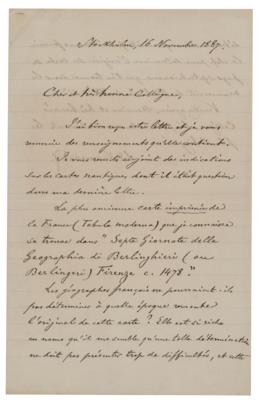 Stockholm, 16 November 1887.
Cher et très honoré Collègue,
J'ai bien reçu votre lettre et je vous
remercie des renseignements qu'elle contient.
Je vous remets ci-joint des indications
sur les cartes nautiques dont il était question
dans ma dernière lettre.
La plus ancienne carte imprimée de
la France (Tabula moderna) que je connaisse
se trouve dans "Septe Giornate della
Geographia di Berlinghieris (ou
Berlingeri) Firenze c. 1478."
Les géographes français ne pourraient-ils
pas déterminer à quelle époque remonte
l'original de cette carte? Elle est si riche
en noms qu'il me semble qu'une telle détermination
ne doit pas présenter trop de difficultés, et cette